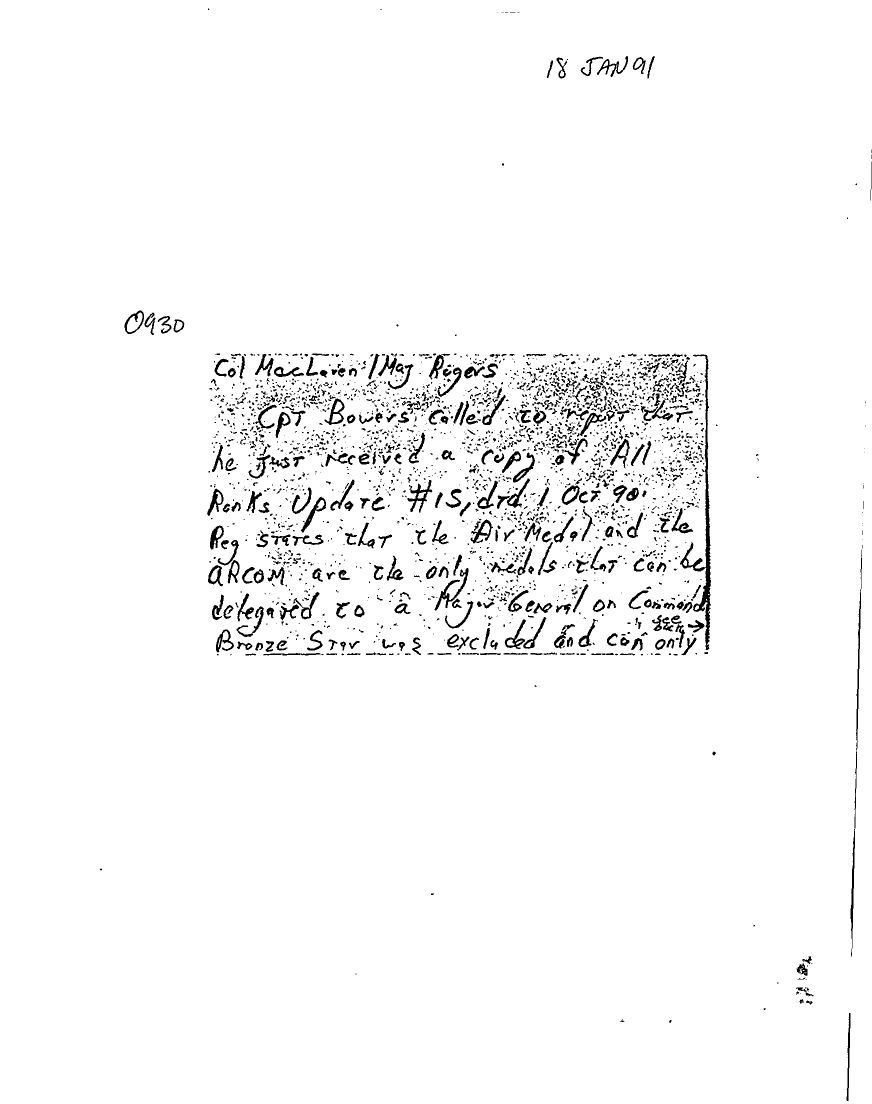 18 JAN 91
0930
Col MacLaren / Maj Rogers
CPT Bowers called to report that
he just received a copy of All
Ranks Update #15, dtd 1 Oct 90.
Reg states that the Air Medal and the
ARCOM are the only medals that can be
delegated to a Major General on Command
see
back →
Bronze Star was excluded and can only